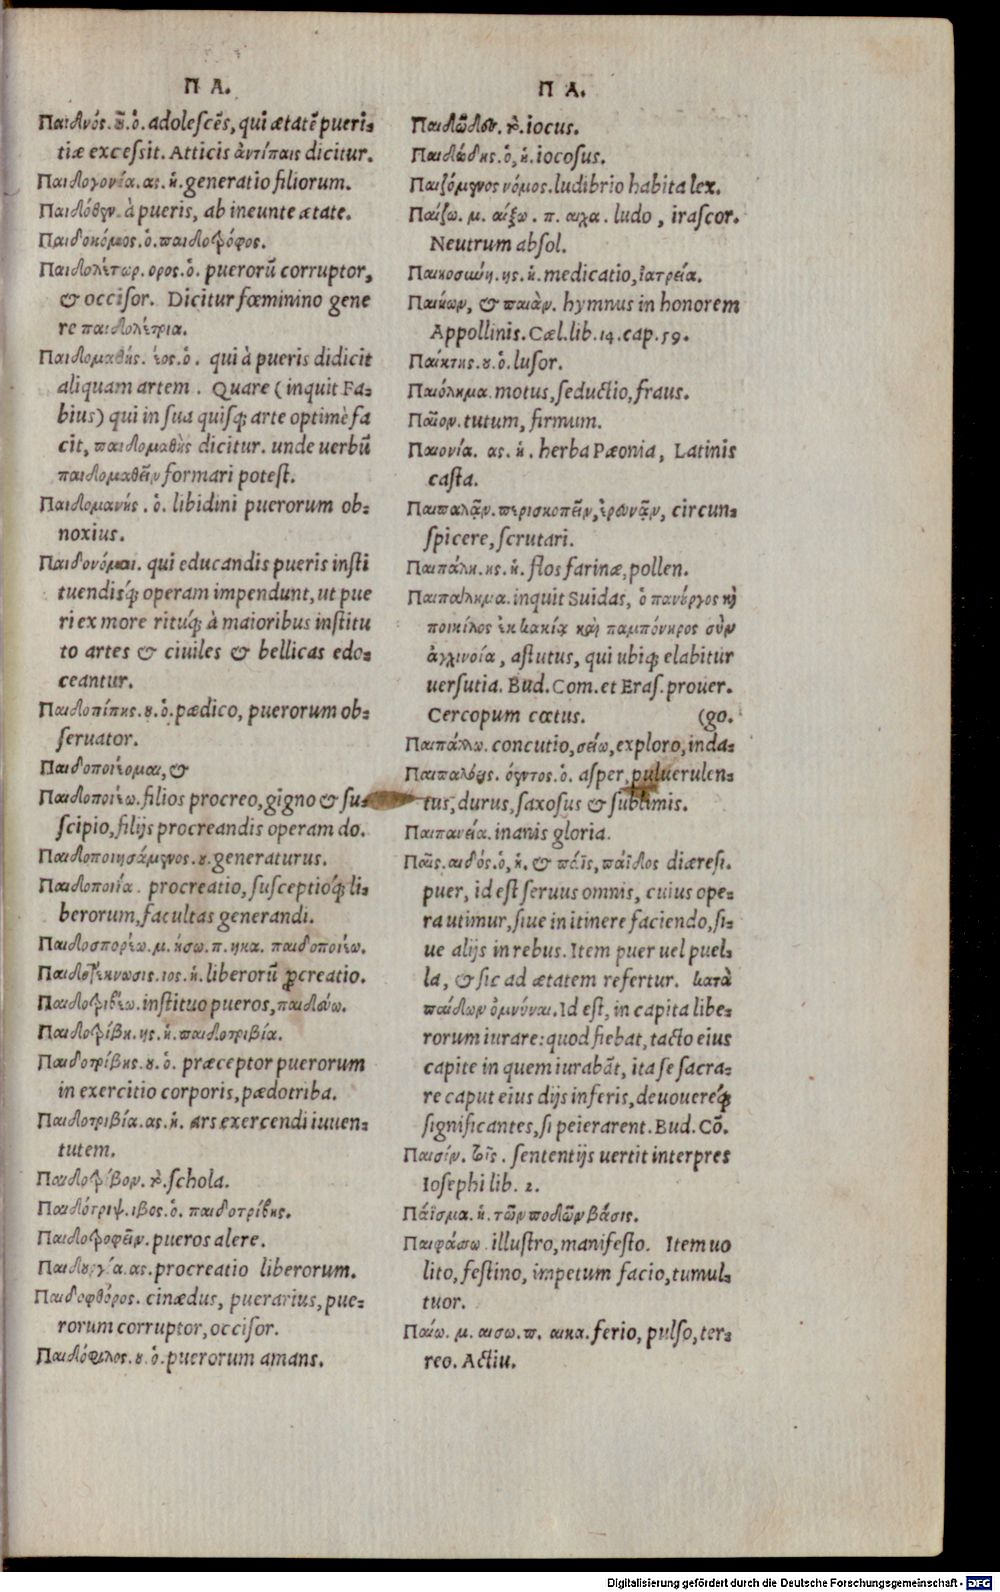 Π Α.
Παιδνός. οῦ. ὁ. adoleſcẽs, qui ætatẽ pueri-
tiæ exceſſit. Atticis ἀντίπαις dicitur.
Παιδογονία. ας. ἡ. generatio filiorum.
Παιδόθεν. à pueris, ab ineunte ætate.
Παιδοκόμος. ὁ. παιδοτρόφος.
Παιδολέτωρ. ορος. ὁ. puerorũ corruptor,
& occiſor. Dicitur fœminino gene
re παιδολέτρια.
Παιδομαθής. έος. ὁ. qui à pueris didicit
aliquam artem. Quare (inquit Fa-
bius) qui in ſua quiſq; arte optimè fa
cit, παιδομαθὴς dicitur. unde uerbũ
παιδομαθεῖν formari poteſt.
Παιδομανής. ὁ. libidini puerorum ob-
noxius.
Παιδονόμοι. qui educandis pueris inſti
tuendisq́; operam impendunt, ut pue
ri ex more rituq́; à maioribus inſtitu
to artes & ciuiles & bellicas edo-
ceantur.
Παιδοπίπης. ου. ὁ. pædico, puerorum ob-
ſeruator.
Παιδοποιέομαι, &
Παιδοποιέω. filios procreo, gigno & ſu-
ſcipio, filijs procreandis operam do.
Παιδοποιησάμενος. ου. generaturus.
Παιδοποιΐα. procreatio, ſuſceptioq́; li-
berorum, facultas generandi.
Παιδοσπορέω. μ. ήσω. π. ηκα. παιδοποιέω.
Παιδοτέκνωσις. ιος. ἡ. liberorũ ꝓcreatio.
Παιδοτριβέω. inſtituo pueros, παιδεύω.
Παιδοτρίβη. ης. ἡ. παιδοτριβία.
Παιδοτρίβης. ου. ὁ. præceptor puerorum
in exercitio corporis, pædotriba.
Παιδοτριβία. ας. ἡ. ars exercendi iuuen-
tutem.
Παιδοτρίβον. τὸ. ſchola.
Παιδότριψ. ιβος. ὁ. παιδοτρίβης.
Παιδοτροφεῖν. pueros alere.
Παιδουργία. ας. procreatio liberorum.
Παιδοφθόρος. cinædus, puerarius, pue-
rorum corruptor, occiſor.
Παιδόφιλος. ου. ὁ. puerorum amans.
Π Α.
τὸ. iocus.
Παιδώδης. ὁ, ἡ. iocoſus.
Παιζόμενος νόμος. ludibrio habita lex.
Παίζω. μ. αίξω. π. αιχα. ludo, iraſcor.
Neutrum abſol.
Παικοσύνη. ης. ἡ. medicatio, ἰατρεία.
Παιήων, & παιὰν. hymnus in honorem
Appollinis. Cæl. lib. 14. cap. 59.
Παίκτης. ου. ὁ. luſor.
Παιόλημα. motus, ſeductio, fraus.
Παῖον. tutum, firmum.
Παιονία. ας. ἡ. herba Pæonia, Latinis
caſta.
Παιπαλᾷν. περισκοπεῖν, ἐρευνᾷν, circun-
ſpicere, ſcrutari.
Παιπάλη. ης. ἡ. flos farinæ, pollen.
Παιπάλημα. inquit Suidas, ὁ πανοῦργος κὴ
ποικίλος ἐκ κακία καὶ παμπόνηρος σὺν
ἀγχινοία, aſtutus, qui ubiq; elabitur
uerſutia. Bud. Com. et Eraſ. prouer.
Cercopum cœtus. (go.
Παιπάλλω. concutio, σείω, exploro, inda-
Παιπαλόεις. όεντος. ὁ. aſper, puluerulen-
tus, durus, ſaxoſus & ſublimis.
Παιπανεία. inanis gloria.
Παῖς. αιδός. ὁ, ἡ. & πάϊς, πάϊδος diæreſi.
puer, id eſt ſeruus omnis, cuius ope-
ra utimur, ſiue in itinere faciendo, ſi-
ue alijs in rebus. Item puer uel puel-
la, & ſic ad ætatem refertur. κατὰ
παίδων ὀμνύναι. Id eſt, in capita libe-
rorum iurare: quod fiebat, tacto eius
capite in quem iurabãt, ita ſe ſacra-
re caput eius dijs inferis, deuouereq́;
ſignificantes, ſi peierarent. Bud. Cõ.
Παισίν. ſententijs uertit interpres
Ioſephi lib. 2.
Πάϊσμα. ἡ. τῶν ποδῶν βάσις.
Παιφάσσω. illuſtro, manifeſto. Item uo
lito, feſtino, impetum facio, tumul-
tuor.
Παίω. μ. αισω. π. αικα. ferio, pulſo, ter-
reo. Actiu.
Digitalisierung gefördert durch die Deutsche Forschungsgemeinschaft - DFG